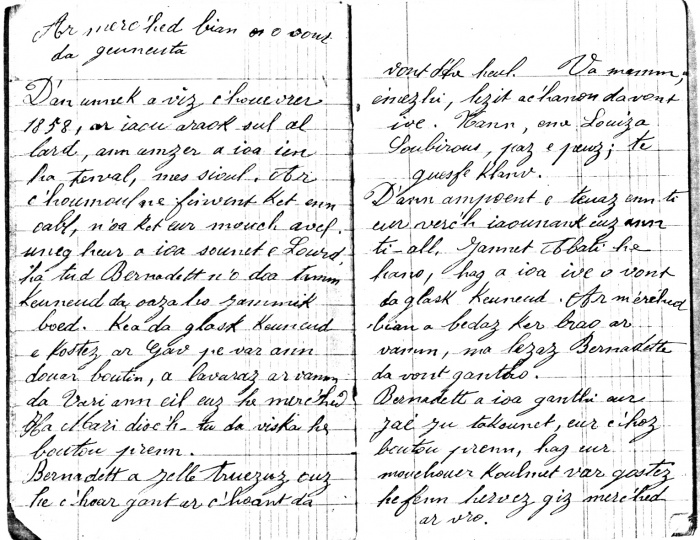 Ar merc'hed bian o vont
da geuneuta
D'an unnek a viz c'houevrer
1858, ar iaou arack sul al
lard, ann amzer a ioa ien
ha tenval, mes sioul. Ar
c'houmoul ne finvent ket enn
oabl, n'oa ket eur mouch avel.
uneg heur a ioa sounet e Lourd,
ha tud Bernadett n'o doa tamm
keuneud da oazaho zammik
boed. Kea da glask keuneud
e kostez ar Gav pe var ann
douar boutin, a lavaraz ar vamm
da Vari ann eil euz he merc'hed
Ha Mari dioc'h-tu da viska he
boutou prenn.
Bernadett a zelle truezuz ouz
he c'hoar gant ar c'hoant da
vont d'he heul. Va mamm,
emezhi, lezit ac'hanon da vont
ive. Nann, eme Louiza
Soubirous, paz e peuz; te
guesfe klanv.
D'ann ampoent e teuaz enn ti
eur verc'h iaouank euz ann
ti-all, Jannet Abati he
hano, hag a ioa ive o vont
da glask keuneud. Ar merc'hed
bian a bedaz ker brao ar
vamm, ma lezaz Bernadette
da vont gantho.
Bernadett a ioa ganthi eur
zaé zu takounet, eur c'hoz
boutou prenn, hag eur
mouchouer koulmet var gostez
he fenn hervez giz merc'hed
ar vro.